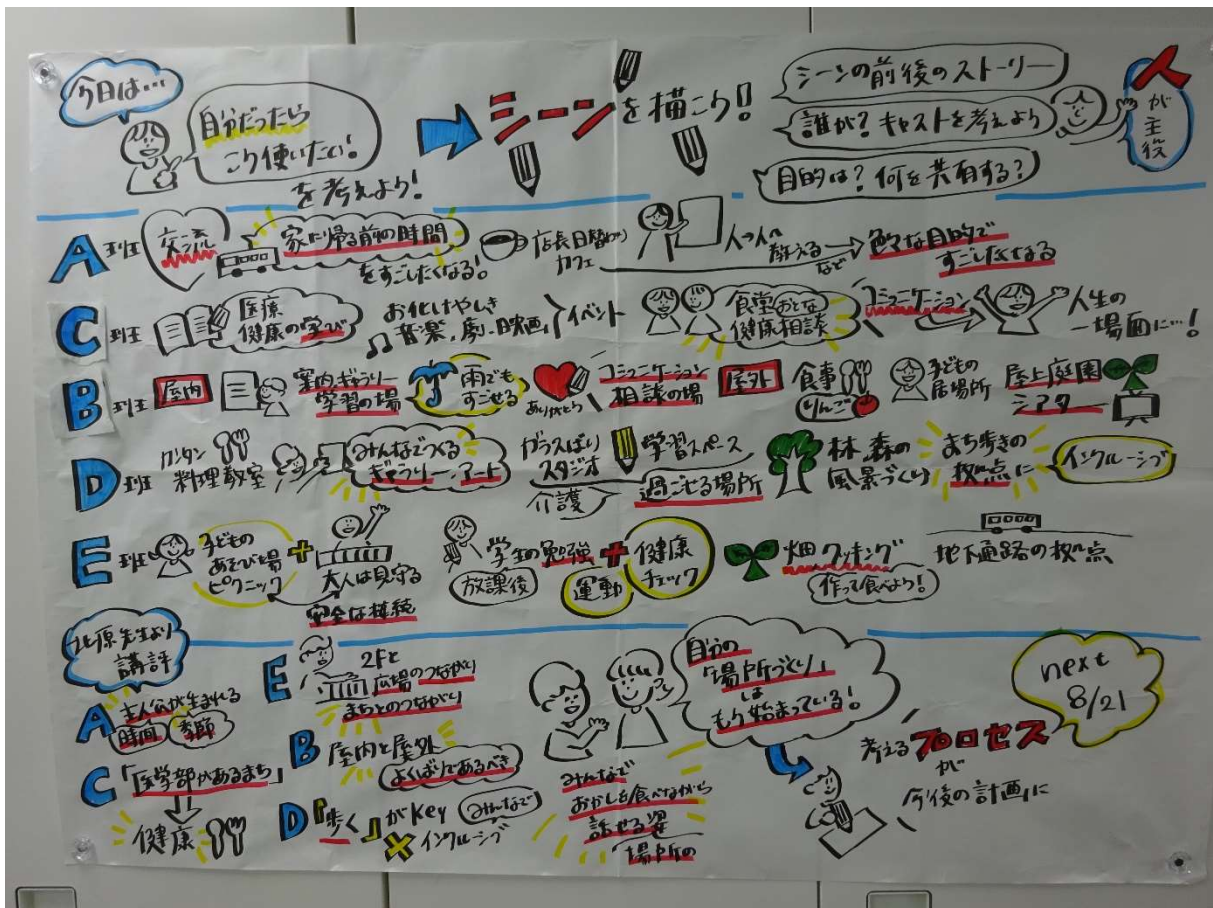 今日は…
自分だったら
こう使いたい!
を考えよう!
シーンを描こう!!
シーンの前後のストーリー
誰が?キャストを考えよう
目的は?何を共有する?
人
が
主役
A班
交流
家に帰る前の時間
をすごしたくなる!
店長日替わり
カフェ
人→人へ
教える
など
色々な目的で
すごしたくなる
C班
医療
健康の学び
お化けやしき
音楽、劇、映画、
イベント
食堂おとな
健康相談
コミュニケーション
人生の
一場面に…!
B班
屋内
案内、ぎゃらりー
学習の場
雨でも
すごせる
ありがとう
コミュニケーション
相談の場
屋外
食事
りんご
子どもの
居場所
屋上庭園
シアター
D班
カンタン
料理教室
みんなでつくる
ぎゃらりー、アート
ガラスばり
スタジオ
介護
学習スペース
過ごせる場所
林、森の
風景づくり
まち歩きの
拠点に
インクルーシブ
E班
子どもの
あそび場
ピクニック
+
大人は見守る
安全な接続
学生の勉強
放課後
+
運動
健康
チェック
畑クッキング
作って食べよう!
地下通路の拠点
北原先生より
講評
A
主人公が生まれる
時間
季節
C
「医学部があるまち」
健康
E
2Fと
広場のつながり
まちとのつながり
B
屋内と屋外
よくばりであるべき
D
「歩く」がKey
みんなで
×インクルーシブ
みんなで
おかしを食べながら
話せる姿
場所の
自分の
「場所づくり」
は
もう始まっている!
考えるプロセス
が
今後の計画に
next
8/21